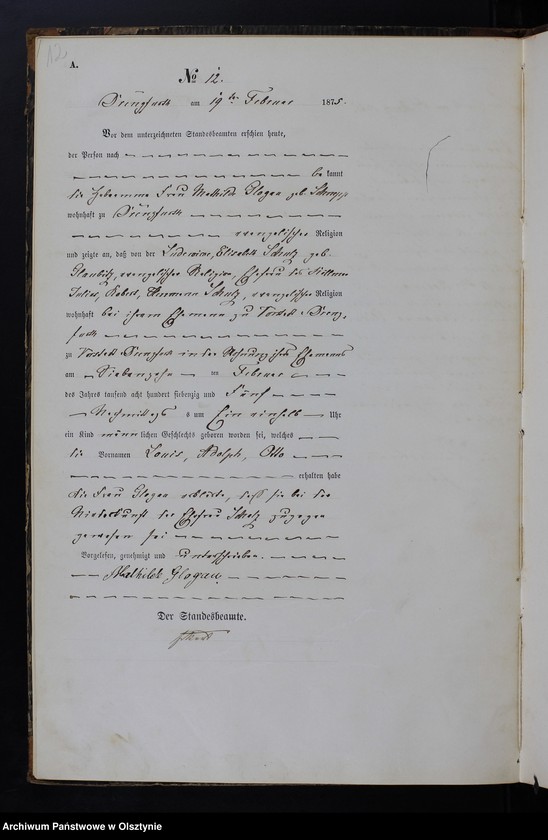 12
A.
No 12.
am 19 ten Februar 1875.
Vor dem unterzeichneten Standesbeamten erschien heute,
der Person nach
be kannt
die Hebamme Frau Mathilde Glogau geb.
wohnhaft zu
evangelischer Religion
und zeigte an, daß von der Elisabeth Schulz geb.
evangelischer Religion, Ehefrau des
Julius, Robert, Hermann Schulz, evangelischer Religion
wohnhaft bei ihrem Ehemann zu
zu in der Wohnung ihres Ehemannes
am Siebenzehn ten Februar
des Jahres tausend acht hundert siebenzig und Fünf
Nachmittags um Ein einhalb Uhr
ein Kind männlichen Geschlechts geboren worden sei, welches
die Vornamen Louis, Adolph, Otto
erhalten habe
die Frau Glogau erklärte, daß sie bei der
Niederkunft der Ehefrau Schulz zugegen
gewesen sei
Vorgelesen, genehmigt und unterschrieben.
Mathilde Glogau.
Der Standesbeamte.
Archiwum Państwowe w Olsztynie